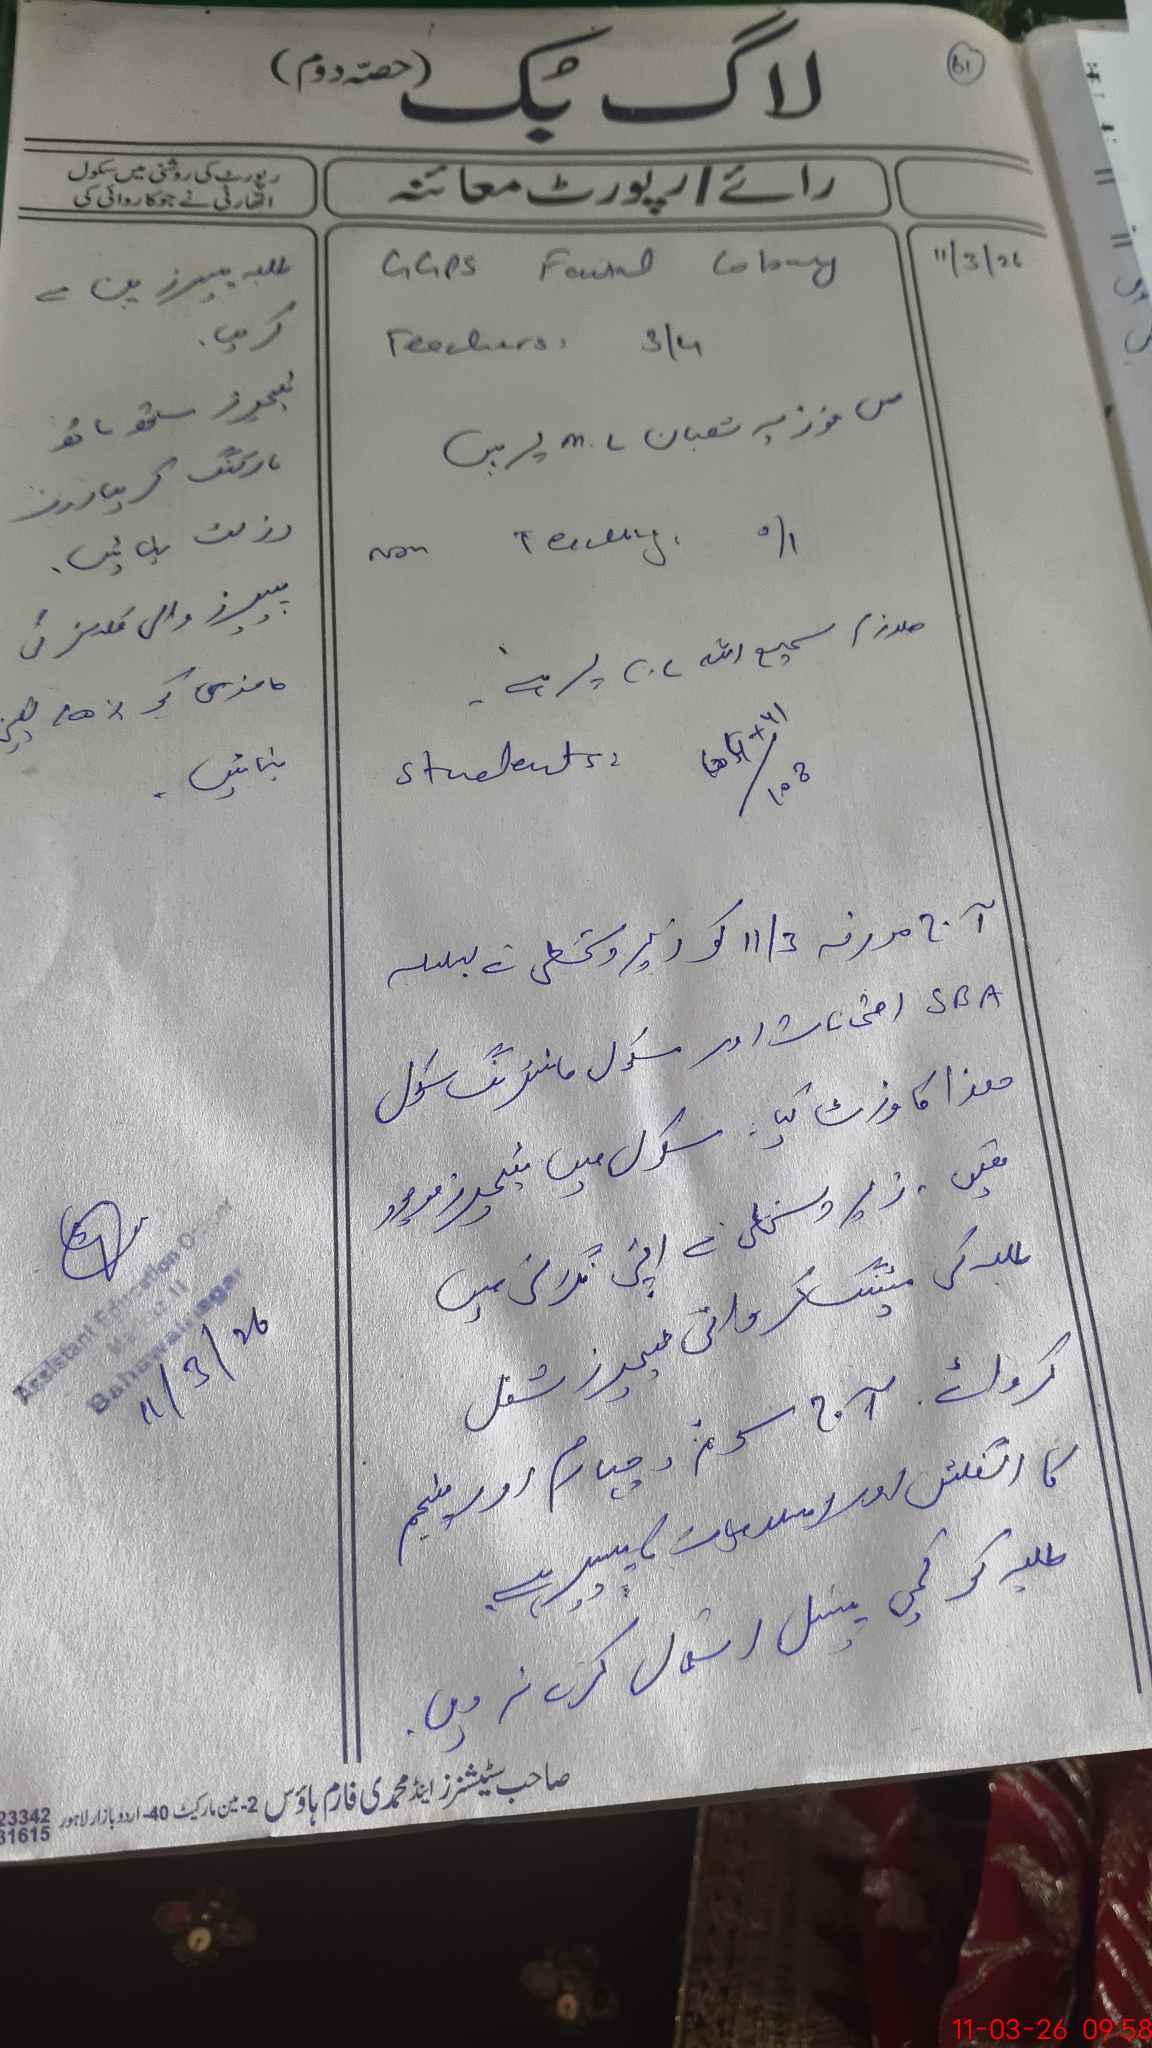 61
لاگ بُک (حصّہ دوم)
رائے / رپورٹ معائنہ
رپورٹ کی روشنی میں سکول
اتھارٹی نے جو کاروائی کی
11/3/26
GGPS Faisal Colony
Teachers: 3/4
مس فوزیہ شعبان M.L پر ہیں
Non Teaching: 0/1
ملازم سمیع اللہ پر ہے۔
Students:
108
آج مورخہ 11/3 کو زیر دستخطی نے بسلسلہ
SBA امتحانات اور سکول مانیٹرنگ سکول
ھذا کا وزٹ کیا۔ سکول میں ٹیچرز موجود
تھیں۔ زیر دستخطی نے اپنی نگرانی میں
طلبہ کی سیٹنگ کروائی ٹیچرز
کروائے۔ آج سوئم، چہارم اور پنجم
کا انگلش اور اسلامیات کا پیپر ہے۔
طلبہ کو کچی پنسل استعمال کرنے نہ دیں۔
طلبہ پیپرز پین سے
کریں۔
ٹیچرز ساتھ ساتھ
مارکنگ کریں اور
رزلٹ بنائیں۔
پیپرز والی کلاسز کی
حاضری کو 100% یقینی
بنائیں۔
Assistant Education Officer
Bahawalnagar
11/3/26
صاحب سٹیشنرز اینڈ محمدی فارم ہاؤس 2-مین مارکیٹ 40-اردو بازار لاہور
23342
31615
11-03-26 09:58